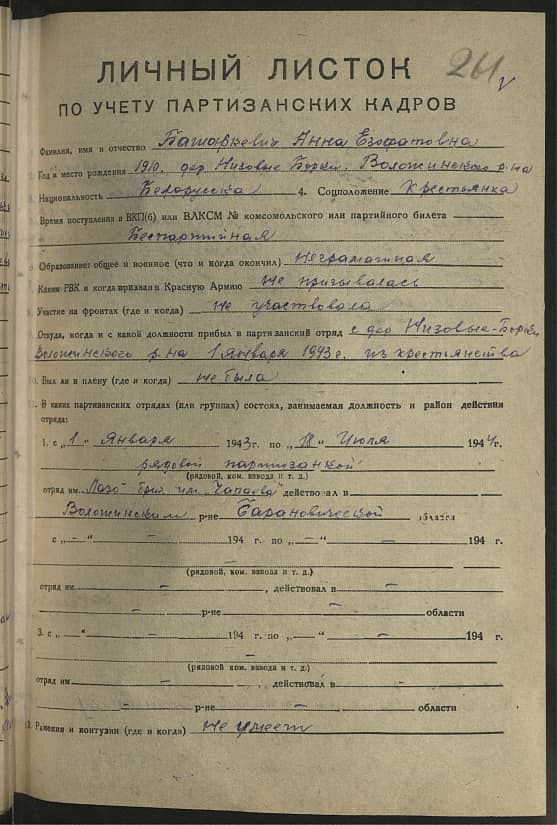 261
ЛИЧНЫЙ ЛИСТОК
ПО УЧЕТУ ПАРТИЗАНСКИХ КАДРОВ
Фамилия, имя и отчество Башаркевич Анна Езофатовна
2. Год и место рождения 1910, дер. Низовые Борки, Воложинского р-на
Национальность Белорусска 4. Соцположение Крестьянка
Время поступления в ВКП(б) или ВЛКСМ № комсомольского или партийного билета
Беспартийная
Образование: общее и военное (что и когда окончил) Неграмотная
Каким РВК и когда призван в Красную Армию Не призывалась
8. Участие на фронтах (где и когда) Не участвовала
Откуда, когда и с какой должности прибыл в партизанский отряд с дер. Низовые-Борки
Воложинского р-на 1 января 1943 г. из крестьянства
10. Был ли в плену (где и когда) не была
В каких партизанских отрядах (или группах) состоял, занимаемая должность и район действия
отряда:
1. с „1" Января 1943 г. по „18" Июля 1944 г.
рядовой партизанкой
(рядовой, ком. взвода и т. д.)
отряд им. Лазо бриг. им. Чапаева действовал в
Воложинским р-не Барановической области
с „ — " — 194 г. по „ — " — 194 г.
—
(рядовой, ком. взвода и т. д.)
отряд им — , действовал в —
— р-не — области
3. с „ — " — 194 г. по „ — " — 194 г.
—
(рядовой, ком. взвода и т. д.)
отряд им — , действовал в —
— р-не — области
Ранения и контузии (где и когда) не имеет